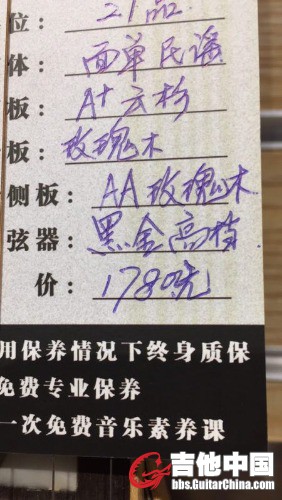 位：21品
体：面单民谣
板：A+云杉
板：玫瑰木
侧板：AA玫瑰木
弦器：黑金高档
价：1780元
用保养情况下终身质保
免费专业保养
一次免费音乐素养课
吉他中国
bbs.GuitarChina.com